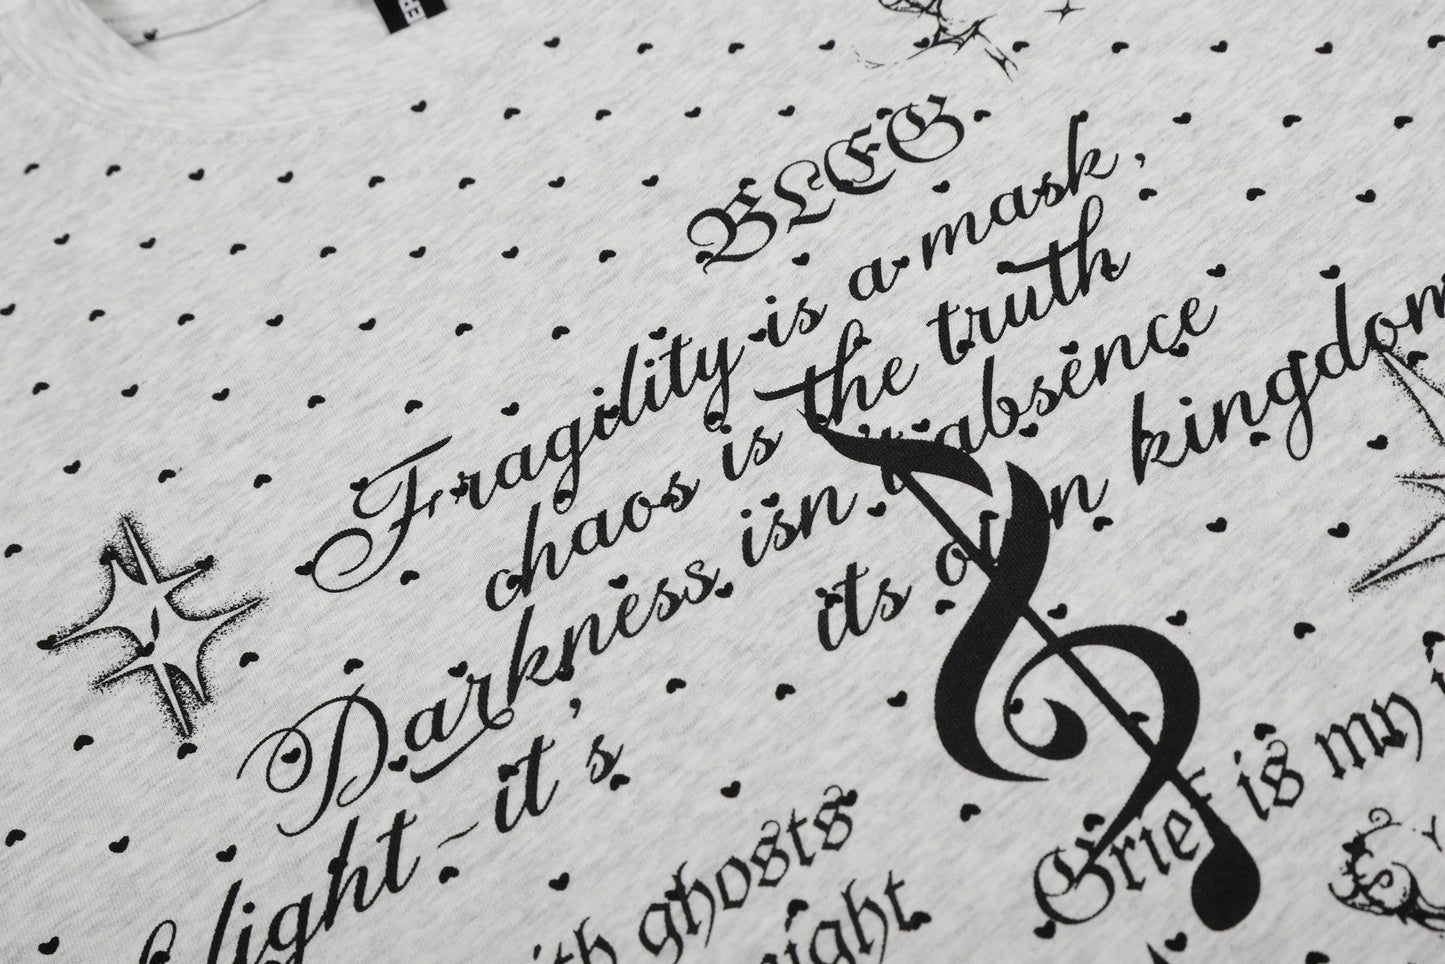 BLEG
Fragility is a mask,
chaos is the truth
Darkness isn't absence
of light-it's its own kingdom
with ghosts
Grief is my